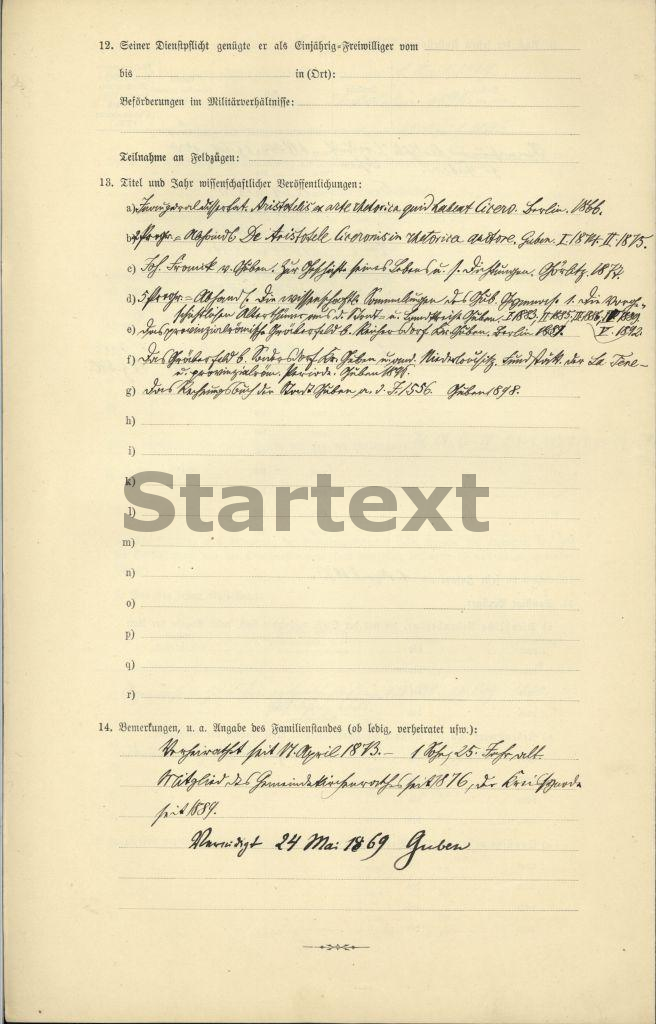 12. Seiner Dienstpflicht genügte er als Einjährig-Freiwilliger vom
bis in (Ort):
Beförderungen im Militärverhältnisse:
Teilnahme an Feldzügen:
13. Titel und Jahr wissenschaftlicher Veröffentlichungen:
a) Inauguraldissertat. Aristotelis ex arte rhetorica quid habeat Cicero. Berlin. 1866.
b) Progr.=Abhandl. De Aristotele Ciceronis in rhetorica auctore. Guben. I. 1874. II. 1875.
c) Joh. Franck v. Guben. Zur Geschichte seines Lebens u. s. Dichtungen. Görlitz. 1877.
d) 5 Progr.=Abhandl. Die wissenschaftl. Sammlungen des Gub. Gymnas. 1. Die
Alterthümer aus d. Stadt= u. Landkreise Guben. I. 1883. II. 1885. III. 1886.
V. 1892.
e) Das provinzialrömische Gräberfeld b. Reichersdorf Kr. Guben. Berlin
f) Das Gräberfeld b. Sadersdorf Kr. Guben u. and. Niederlausitz. Fundstück. der La Tène=
u. provinzialröm. Periode. Guben
g) Das Rechnungsbuch der Stadt Guben a. d. J. 1556. Guben 1898.
h)
i)
k)
Startext
l)
m)
n)
o)
p)
q)
r)
14. Bemerkungen, u. a. Angabe des Familienstandes (ob ledig, verheiratet usw.):
Verheirathet seit 17. April 1873. — 1 Sohn, 25 Jahr alt.
Mitglied des Gemeindekirchenrathes seit 1876, der Kreissynode
seit 1889.
Vereidigt 24 Mai 1869 Guben